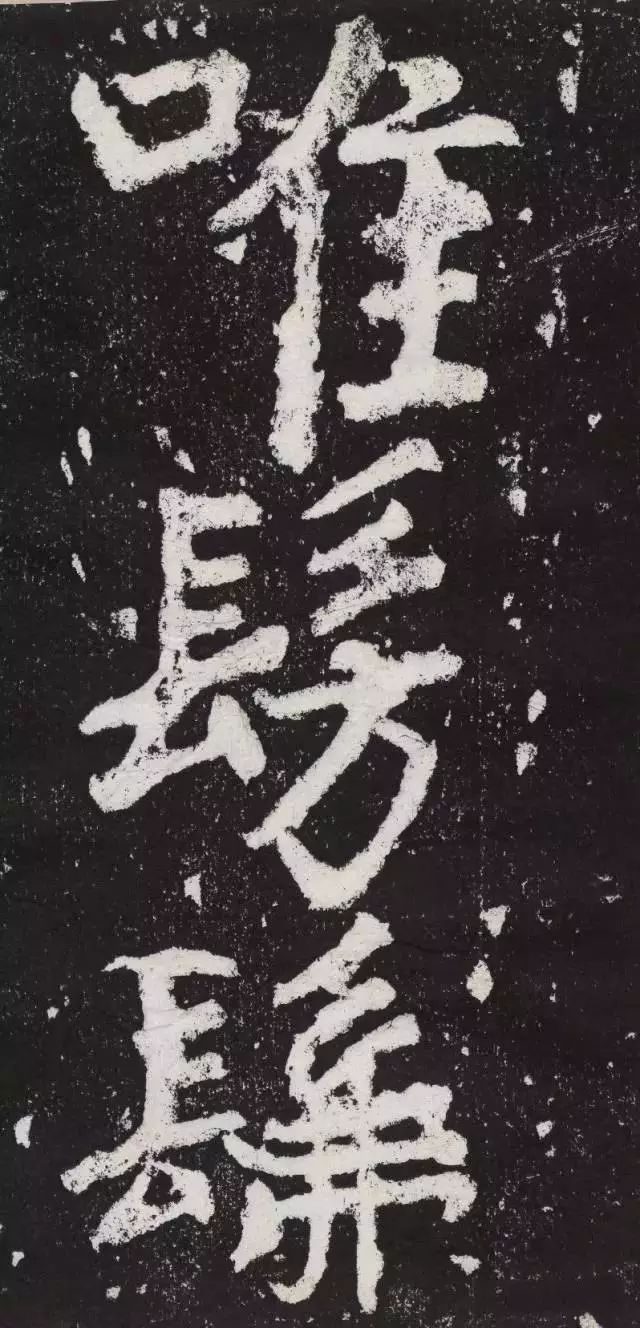 唯髣髴